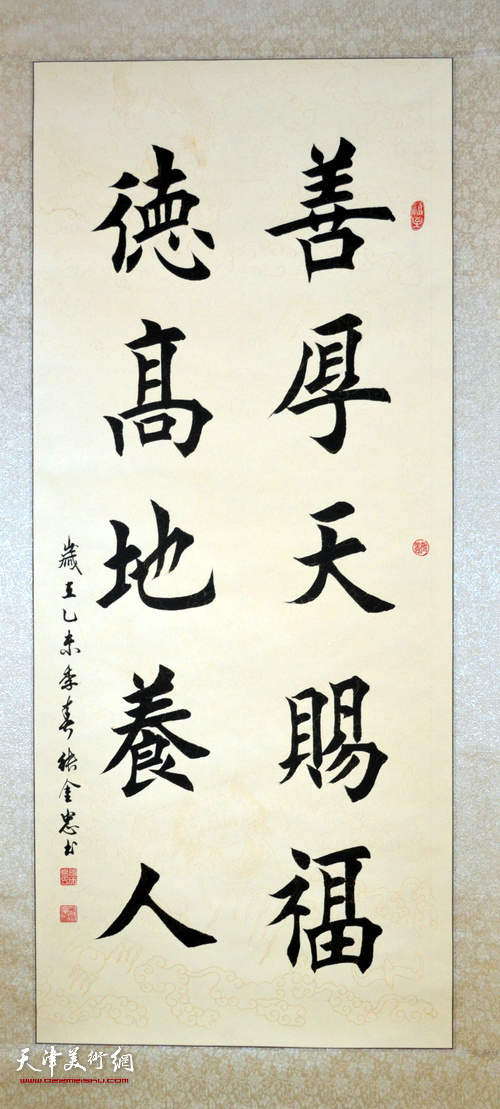 善厚天賜福
德高地養人
歲在乙未季春張金忠書
天津美術網
www.022meishu.com